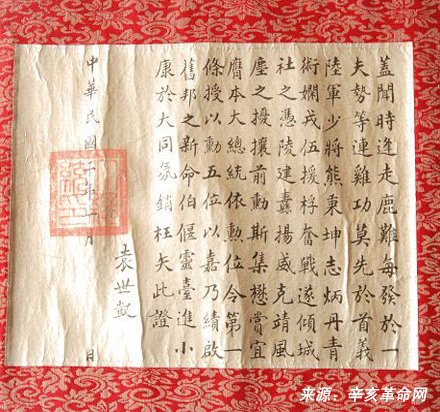 蓋聞時逢走鹿難每發於一
夫勢等連雞功莫先於首義
陸軍少將熊秉坤志炳丹青
術嫻戎伍援桴奮戰遂傾城
社之憑陵建纛揚威克靖風
塵之擾攘前勳斯集懋賞宜
膺本大總統依勳位令第一
條授以勳五位以嘉乃績啟
舊邦之新命伯偃靈臺進小
康於大同氛銷枉矢此證
袁世凱
中華民國年月日
来源:辛亥革命网